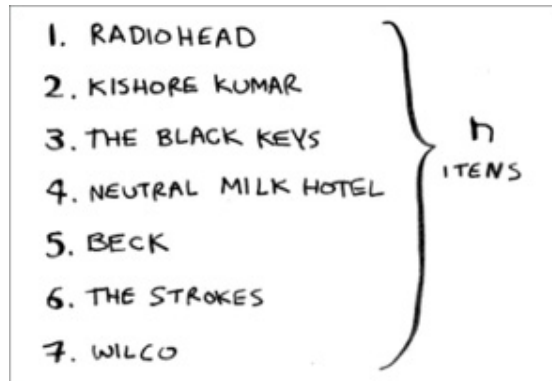 1. RADIOHEAD
2. KISHORE KUMAR
3. THE BLACK KEYS
4. NEUTRAL MILK HOTEL
5. BECK
6. THE STROKES
7. WILCO
n
ITENS